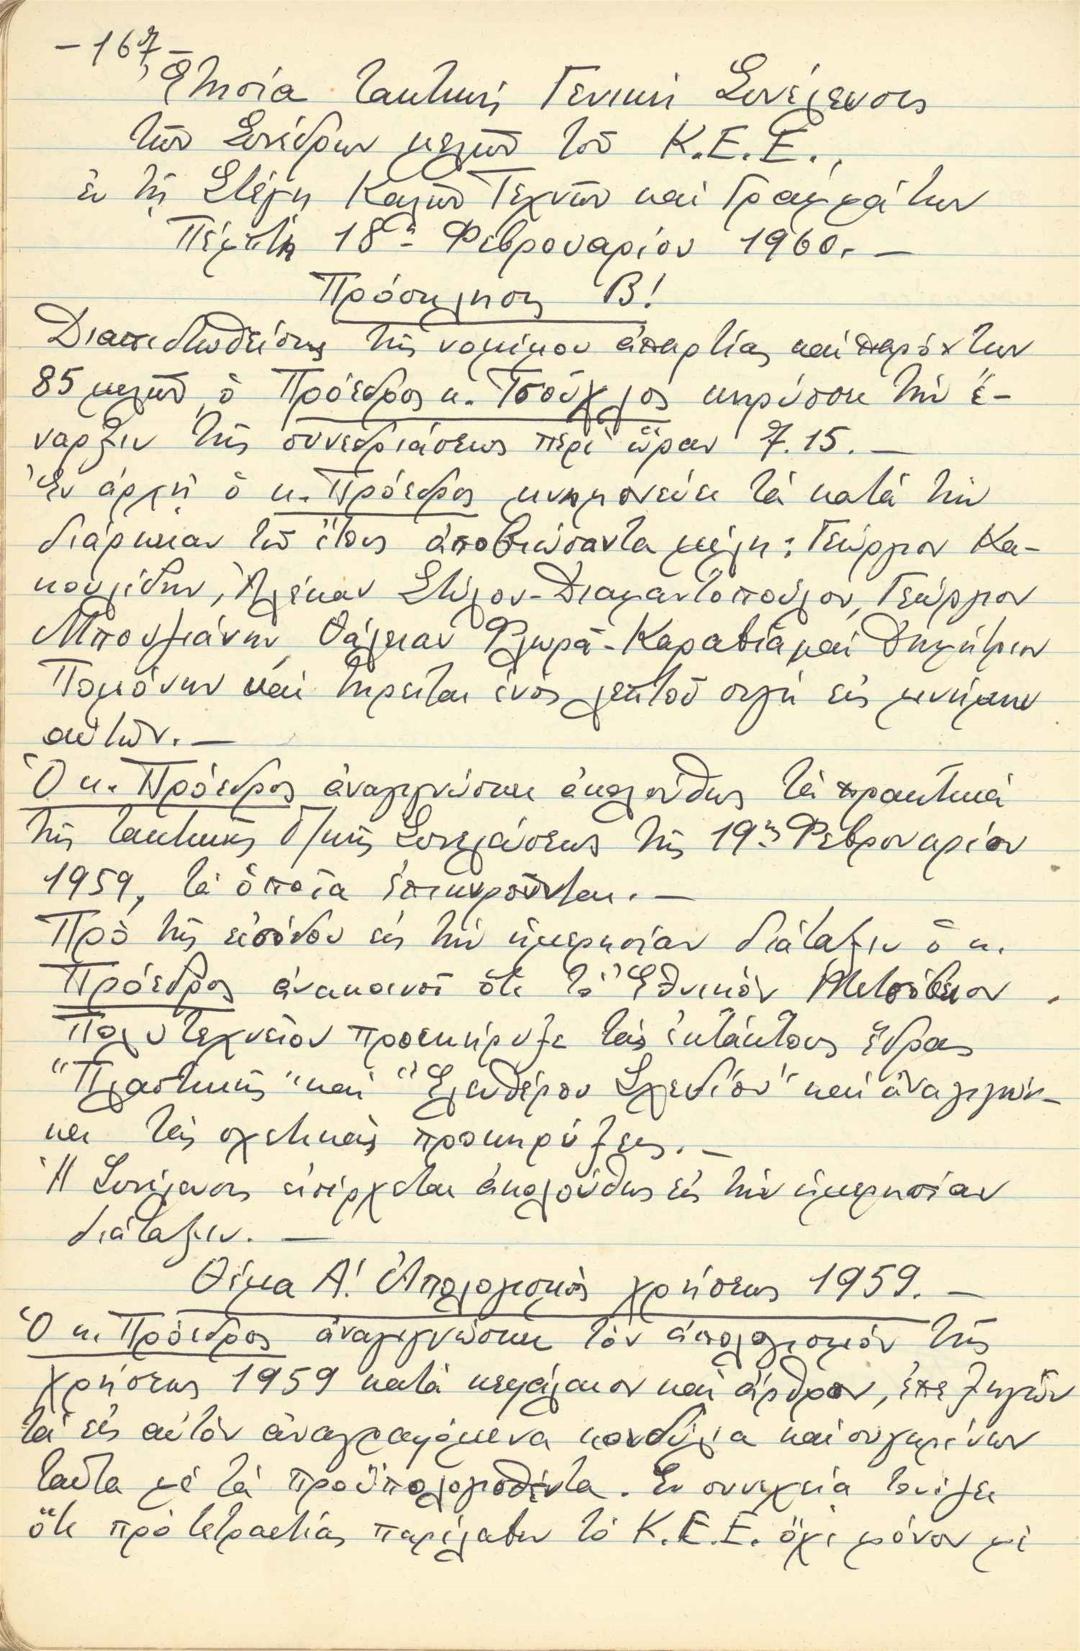 - 167 -
Ἐτησία Τακτική Γενική Συνέλευσις
τῶν Συνέδρων μελῶν τοῦ Κ.Ε.Ε.,
ἐν τῇ Στέγῃ Καλῶν Τεχνῶν καί Γραμμάτων
Πέμπτη 18ῃ Φεβρουαρίου 1960. -
Πρόσκλησις Β!
Διαπιστωθείσης τῆς νομίμου ἀπαρτίας καί παρόντων
85 μελῶν, ὁ Πρόεδρος κ. Τσοῦχλος κηρύσσει τήν ἔ-
ναρξιν τῆς συνεδριάσεως περί ὥραν 7.15. -
Ἐν ἀρχῇ ὁ κ. Πρόεδρος μνημονεύει τά κατά τήν
διάρκειαν τοῦ ἔτους ἀποβιώσαντα μέλη: Γεώργιον Κα-
κουλίδην, Ἀλέκαν Στύλου-Διαμαντοπούλου, Γεώργιον
Μπουζιάνην, Θάλειαν Φλωρᾶ-Καραβία καί Δημήτριον
Πομόνην καί τηρεῖται ἑνός λεπτοῦ σιγή εἰς μνήμην
αὐτῶν. -
Ὁ κ. Πρόεδρος ἀναγιγνώσκει ἀκολούθως τά πρακτικά
τῆς τακτικῆς Γ/κῆς Συνελεύσεως τῆς 19ης Φεβρουαρίου
1959, τά ὁποῖα ἐπικυροῦνται. -
Πρό τῆς εἰσόδου εἰς τήν ἡμερησίαν διάταξιν ὁ κ.
Πρόεδρος ἀνακοινοῖ ὅτι τό Ἐθνικόν Μετσόβιον
Πολυτεχνεῖον προεκήρυξε τάς ἐκτάκτους ἕδρας
"Πλαστικῆς" καί "Ἐλευθέρου Σχεδίου" καί ἀναγιγνώ-
κει τάς σχετικάς προκηρύξεις. -
Ἡ Συνέλευσις εἰσέρχεται ἀκολούθως εἰς τήν ἡμερησίαν
διάταξιν. -
Θέμα Α! Ἀπολογισμός χρήσεως 1959. -
Ὁ κ. Πρόεδρος ἀναγιγνώσκει τόν ἀπολογισμόν τῆς
χρήσεως 1959 κατά κεφάλαιον καί ἄρθρον, ἐπεξηγῶν
τά εἰς αὐτόν ἀναγραφόμενα κονδύλια καί συγκρίνων
ταῦτα μέ τά προϋπολογισθέντα. Ἐν συνεχεία τονίζει
ὅτι πρό τετραετίας παρέλαβεν τό Κ.Ε.Ε. ὄχι μόνον μέ